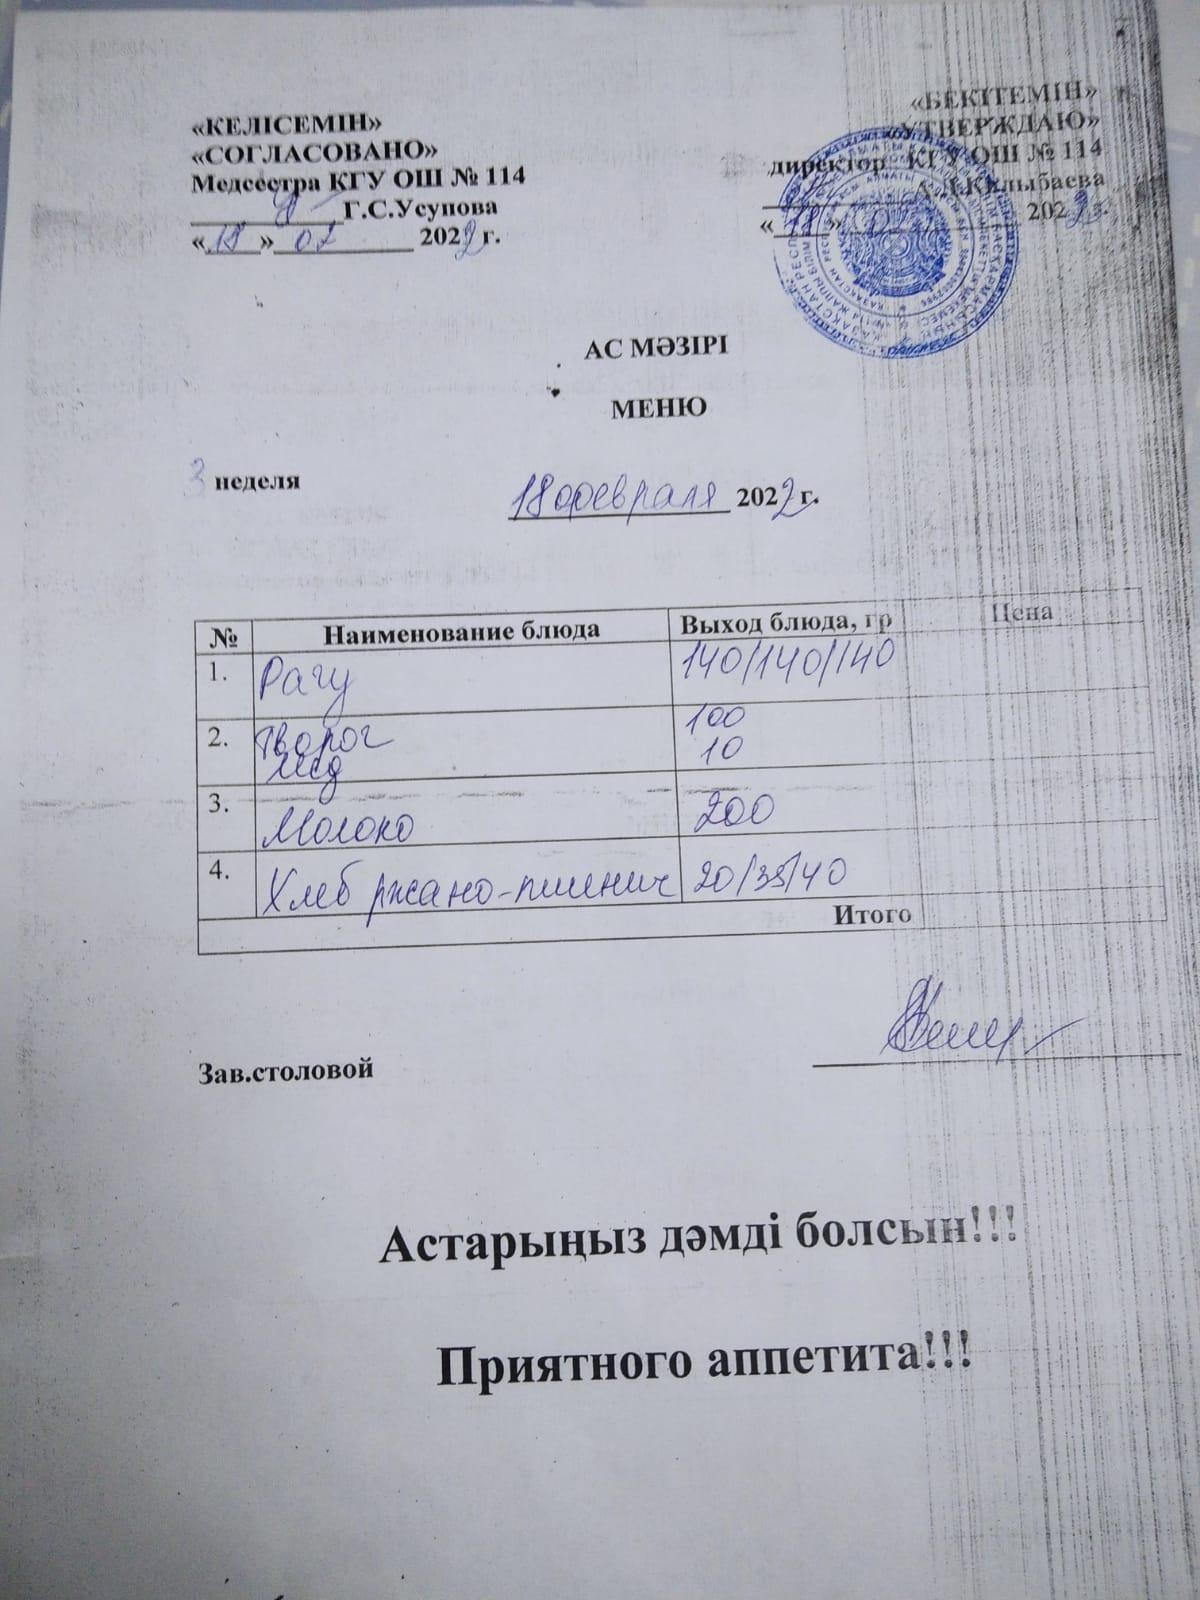 «КЕЛІСЕМІН»
«СОГЛАСОВАНО»
Медсестра КГУ ОШ № 114
Г.С.Усупова
«18» 02 2022 г.
«БЕКІТЕМІН»
«УТВЕРЖДАЮ»
директор КГУ ОШ № 114
А.Д.Килыбаева
«18» 2022 г.
АС МӘЗІРІ
МЕНЮ
3 неделя
18 февраля 2022 г.
№ Наименование блюда Выход блюда, гр Цена
1. Рагу 140/140/140
2. Творог 100
мед 10
3. Молоко 200
4. Хлеб ржано-пшенич 20/35/40
Итого
Зав.столовой
Астарыңыз дәмді болсын!!!
Приятного аппетита!!!